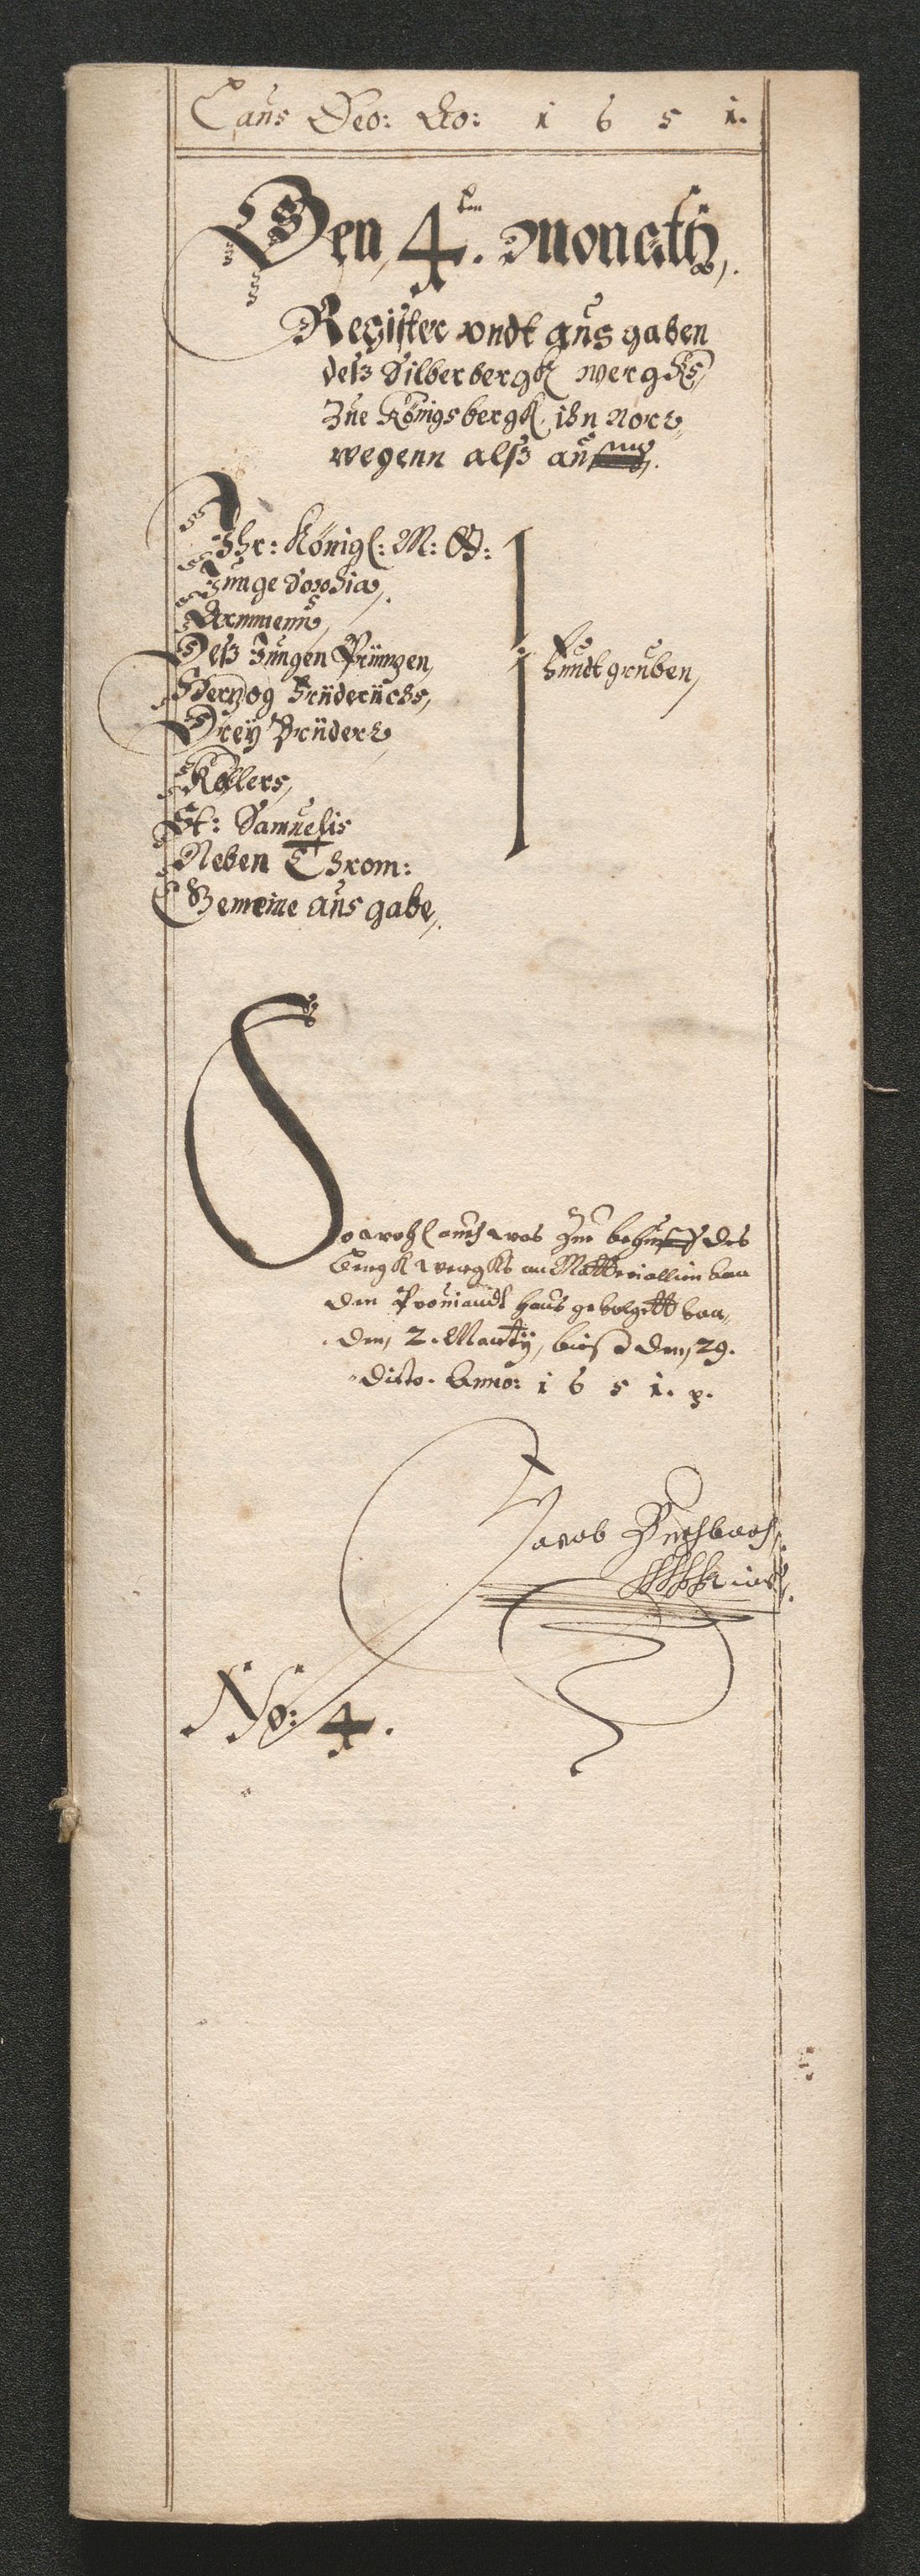 Laus Deo: Ao: 1 6 5 1.
Den 4ten. Monatß
Register vndt ausgaben
deß Silberbergk wergks
Zue Königsbergk ihn Nor
wegenn alß auf
Ihr: Königl: M: G:
Junge Sophia,
Arminenn,
Deß Jungen Printzen,
Hertzog Friederichs,
Drey Brüder
Kollers,
St: Samuelis
Neben Throm:
Gemeine ausgabe,
Fundtgruben,
Sowohl auch was Zue behuff des
Bergkwergks an Matteriallien von
dem Proviandt Haus gevolgett von
den, 2. Marty, bies den, 29.
dicto. Anno: 1 6 5 1. p.
Jacob
No: 4.